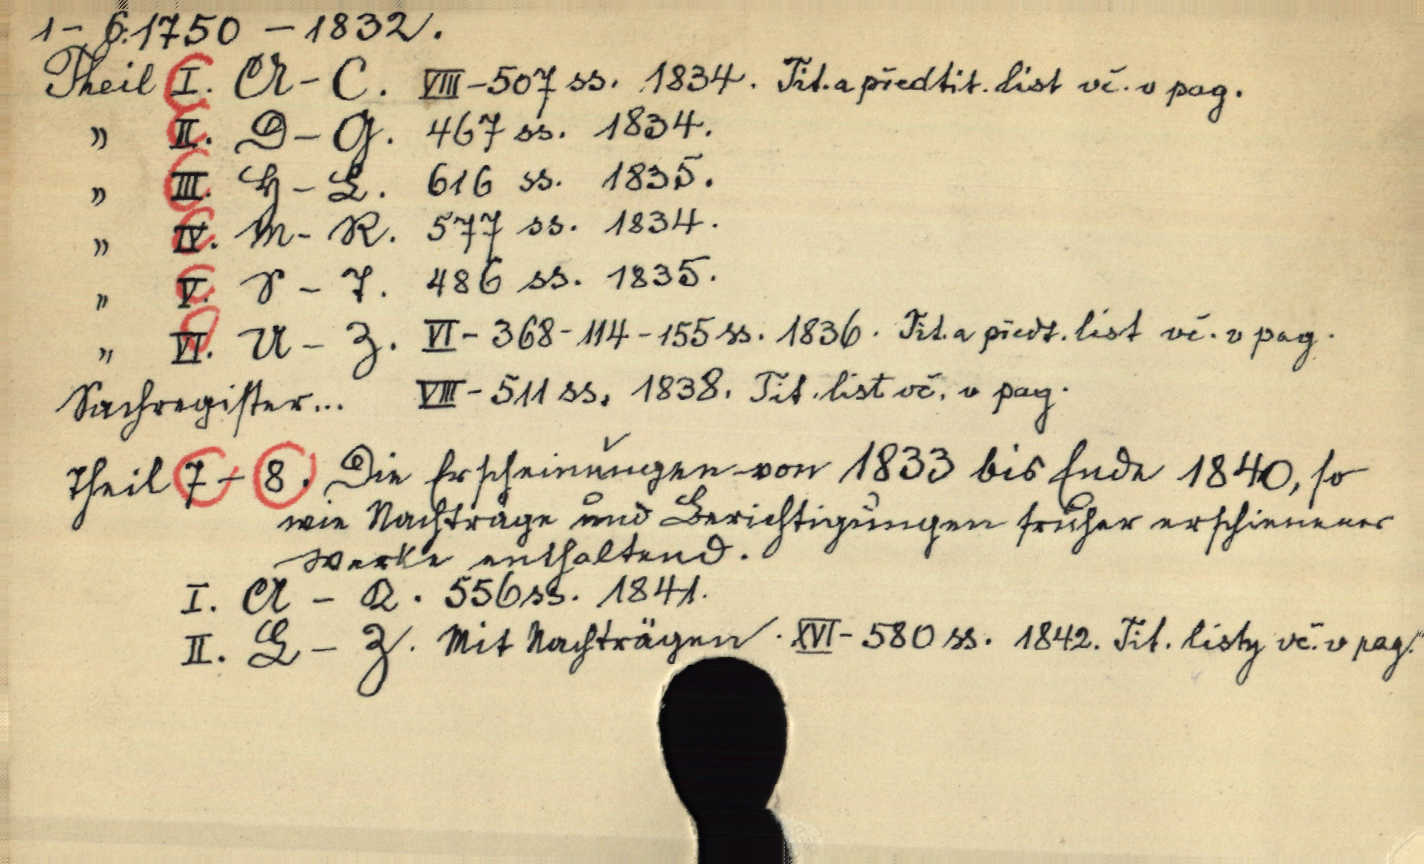 1-6: 1750 - 1832.
Theil I. A - C. VIII - 507 ss. 1834. Tit. a předtit. list vč. v pag.
" II. D - G. 467 ss. 1834.
" III. H - L. 616 ss. 1835.
" IV. M - R. 577 ss. 1834.
" V. S - T. 486 ss. 1835.
" VI. U - Z. VI - 368 - 114 - 155 ss. 1836. Tit. a předt. list vč. v pag.
Sachregister... VIII - 511 ss. 1838. Tit. list vč. v pag.
Theil 7 - 8. Die Erscheinungen von 1833 bis Ende 1840, so
wie Nachträge und Berichtigungen früher erschienener
Werke enthaltend.
I. A - K. 556 ss. 1841.
II. L - Z. Mit Nachträgen. XVI - 580 ss. 1842. Tit. listy vč. v pag.